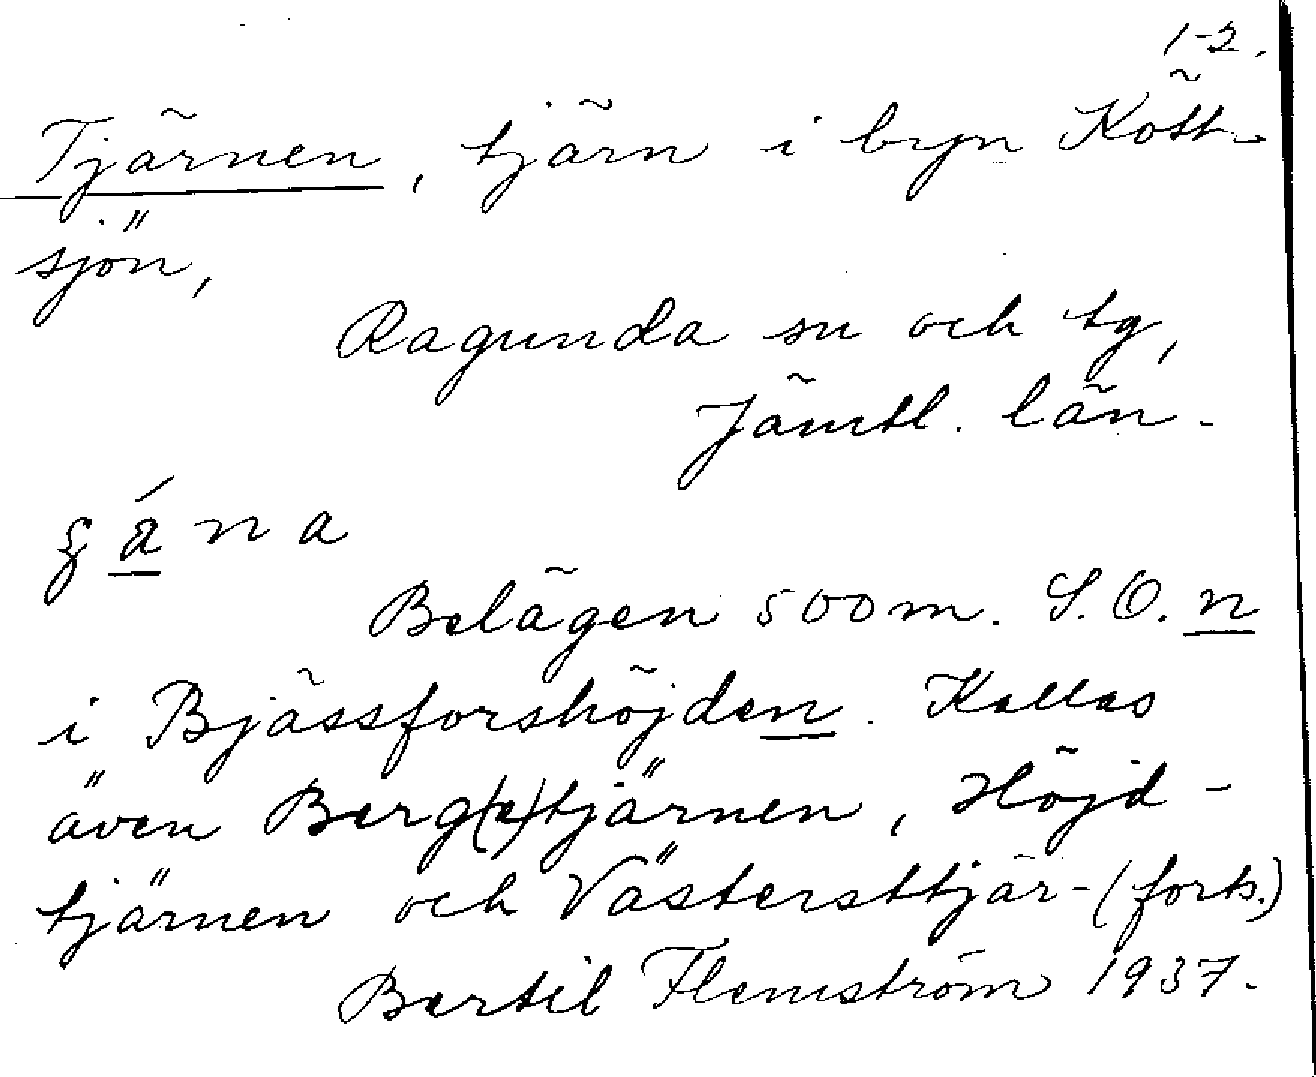 1-2.
Tjärnen, tjärn i byn Kött-
sjön,
Ragunda sn och tg,
Jämtl. län.
Belägen 500 m. S.O. n
i Bjässforshöjden. Kallas
även Berg(s)tjärnen, Höjd-
tjärnen och Västersttjär- (forts.)
Bertil Flemström 1937.